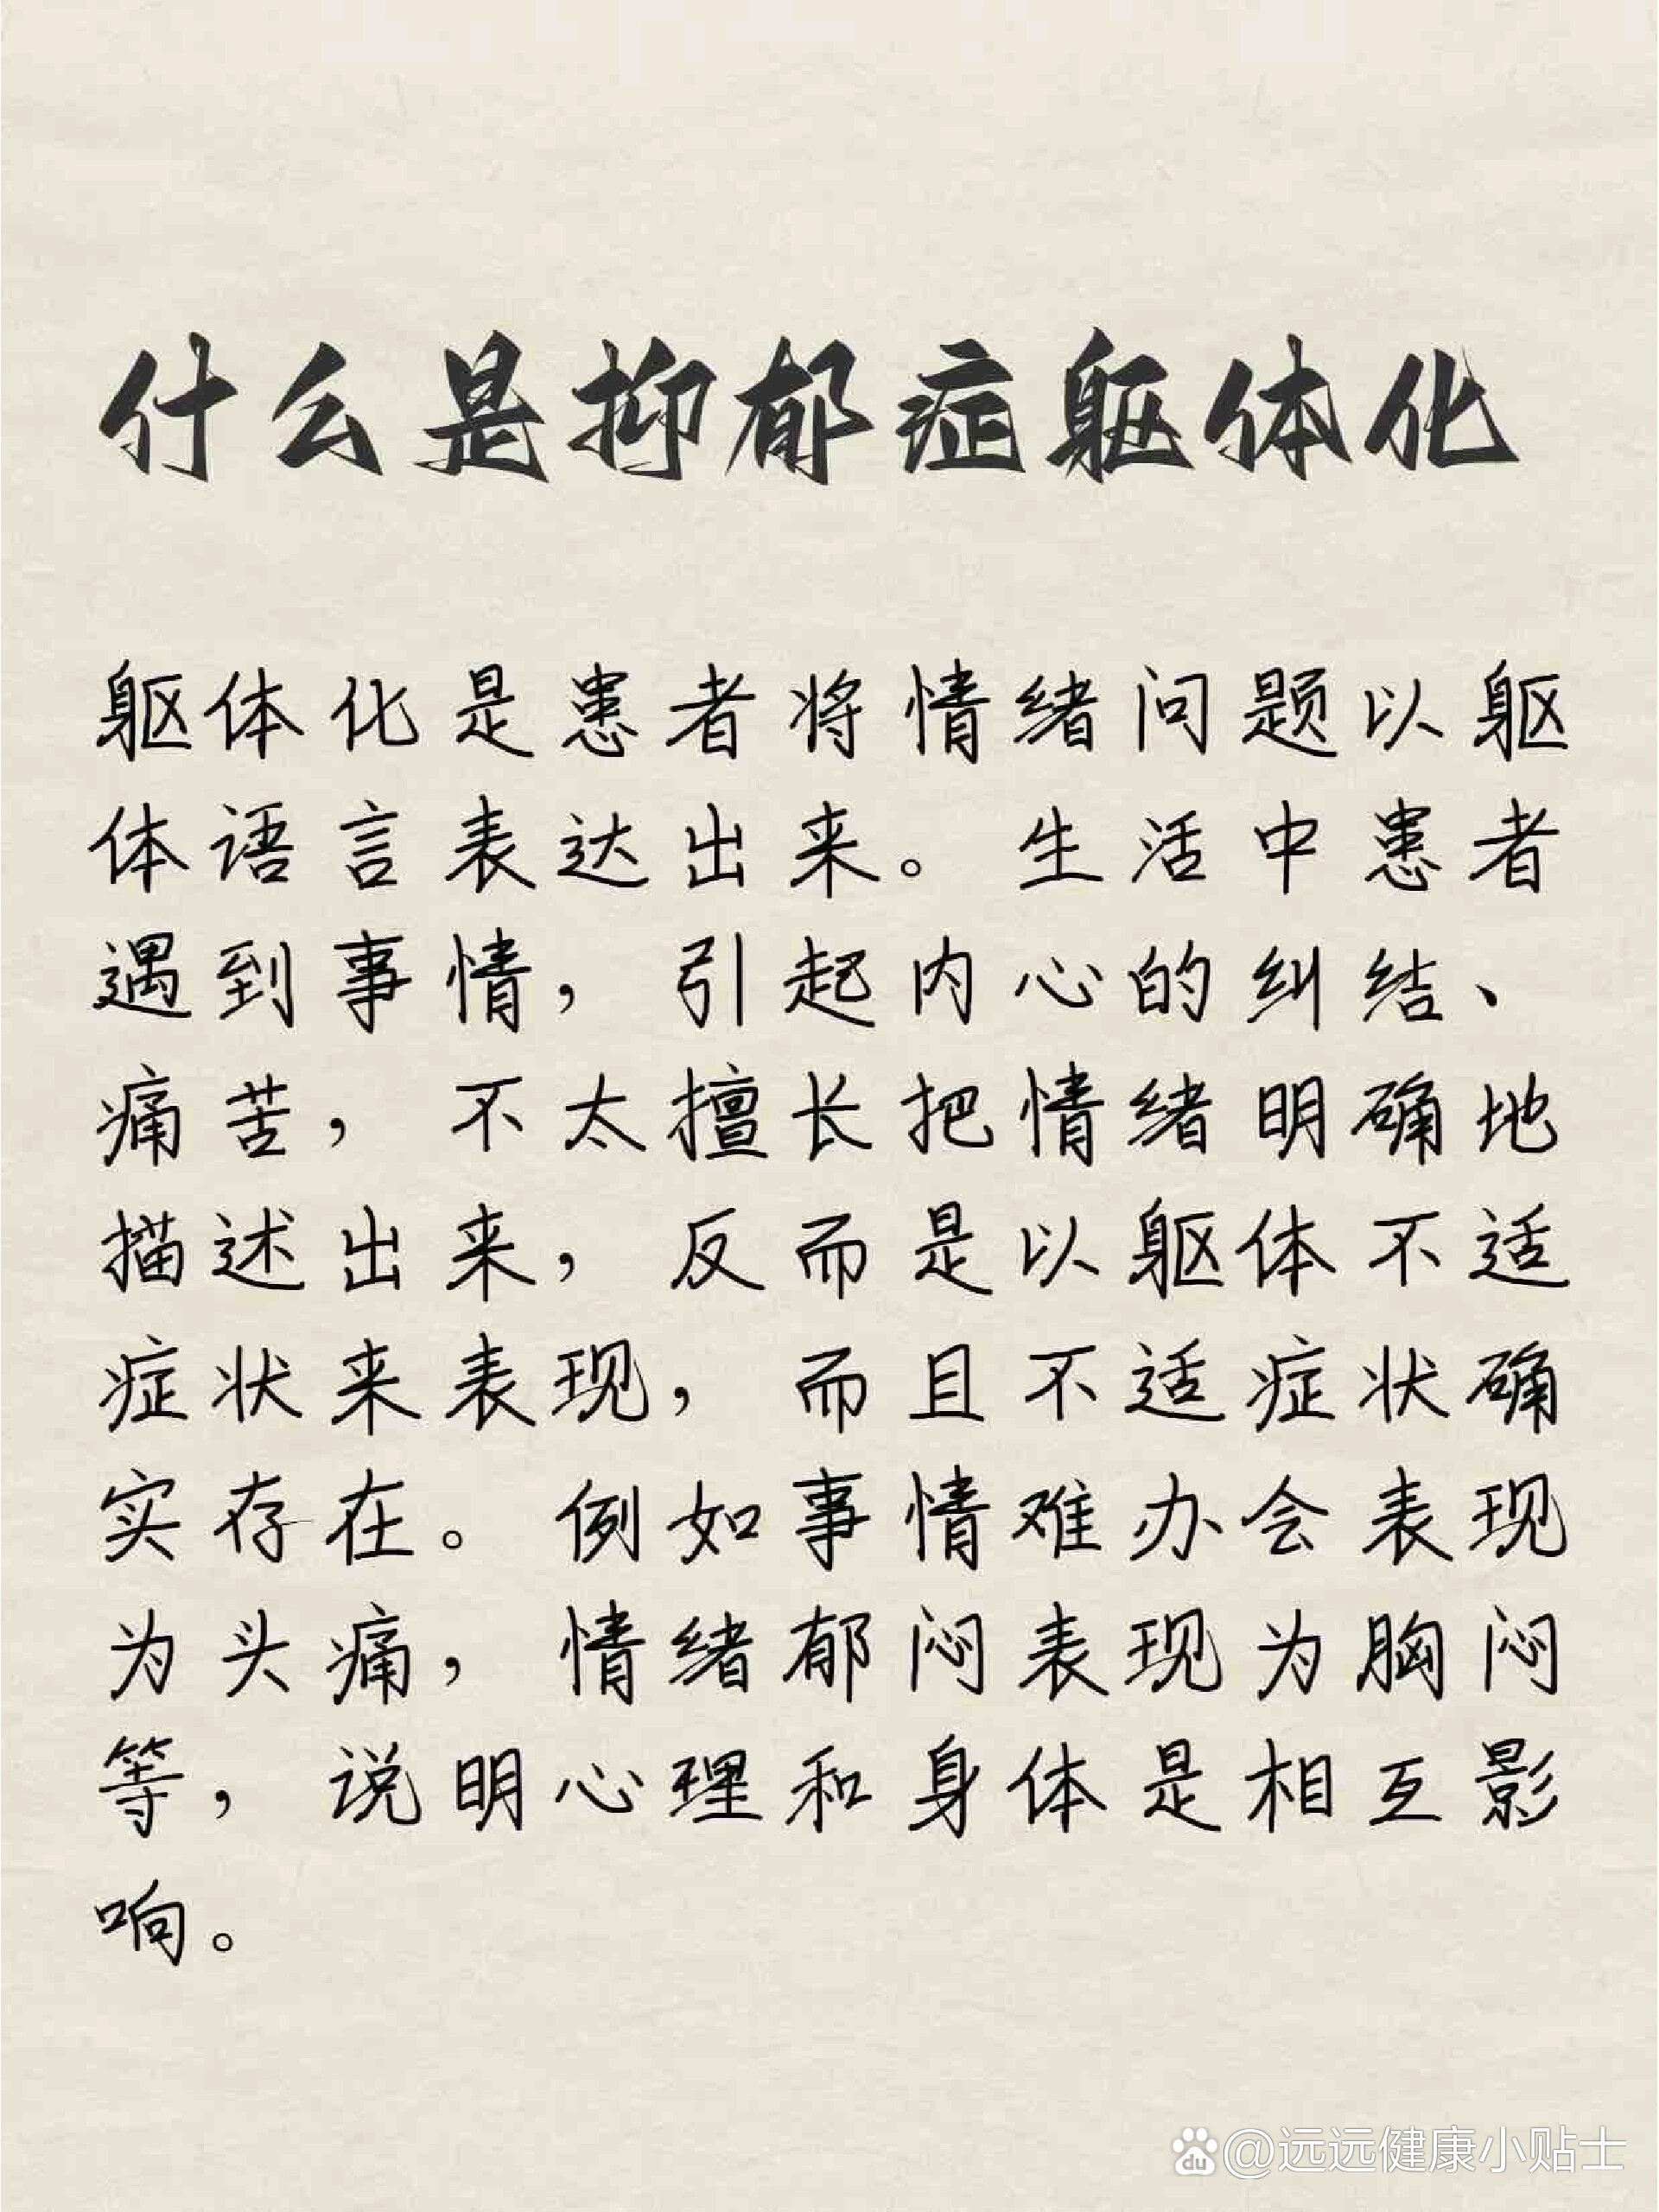 什么是抑郁症躯体化
躯体化是患者将情绪问题以躯
体语言表达出来。生活中患者
遇到事情，引起内心的纠结、
痛苦，不太擅长把情绪明确地
描述出来，反而是以躯体不适
症状来表现，而且不适症状确
实存在。例如事情难办会表现
为头痛，情绪郁闷表现为胸闷
等，说明心理和身体是相互影
响。
du @远远健康小贴士